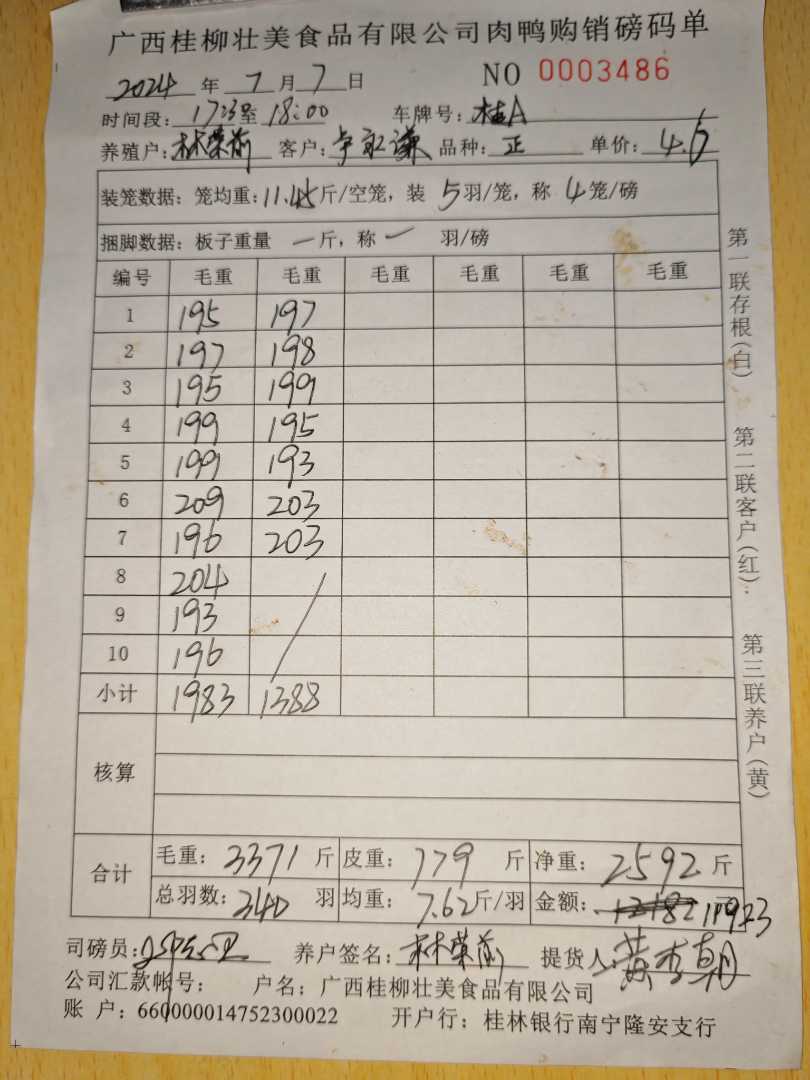 广西桂柳壮美食品有限公司肉鸭购销磅码单
2024 年 7 月 7 日 NO 0003486
时间段: 17:3 至 18:00 车牌号: 桂A
养殖户: 林荣前 客户: 品种: 正 单价: 4.6
装笼数据: 笼均重: 11.45 斤/空笼, 装 5 羽/笼, 称 4 笼/磅
捆脚数据: 板子重量 一 斤, 称 一 羽/磅
编号 毛重 毛重 毛重 毛重 毛重 毛重
1 195 197
2 197 198
3 195 199
4 199 195
5 199 193
6 209 203
7 196 203
8 204
9 193
10 196
小计 1983 1388
核算
合计 毛重: 3371 斤 皮重: 779 斤 净重: 2592 斤
总羽数: 340 羽 均重: 7.62 斤/羽 金额: 11923
司磅员: 养户签名: 林荣前 提货人: 黄李朝
公司汇款帐号: 户名: 广西桂柳壮美食品有限公司
账 户: 660000014752300022 开户行: 桂林银行南宁隆安支行
第一联存根(白) 第二联客户(红): 第三联养户(黄)